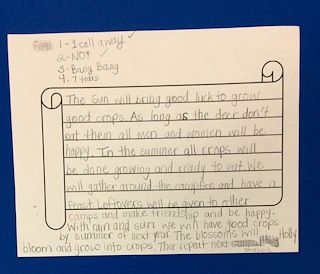 1- 1 call away ✓
2- NO! ✓
3- Bang Bang
4- 7 years
The sun will bring good luck to grow
good crops. As long as the deer don't
eat them all men and women will be
happy. In the summer all crops will
be done growing and ready to eat. We
will gather around the campfire and have a
feast leftovers will be given to other
camps and make friendship and be happy.
With rain and sun we will have good crops
by summer of next year. The blossoms will
Holly
bloom and grow into crops. Then repeat next